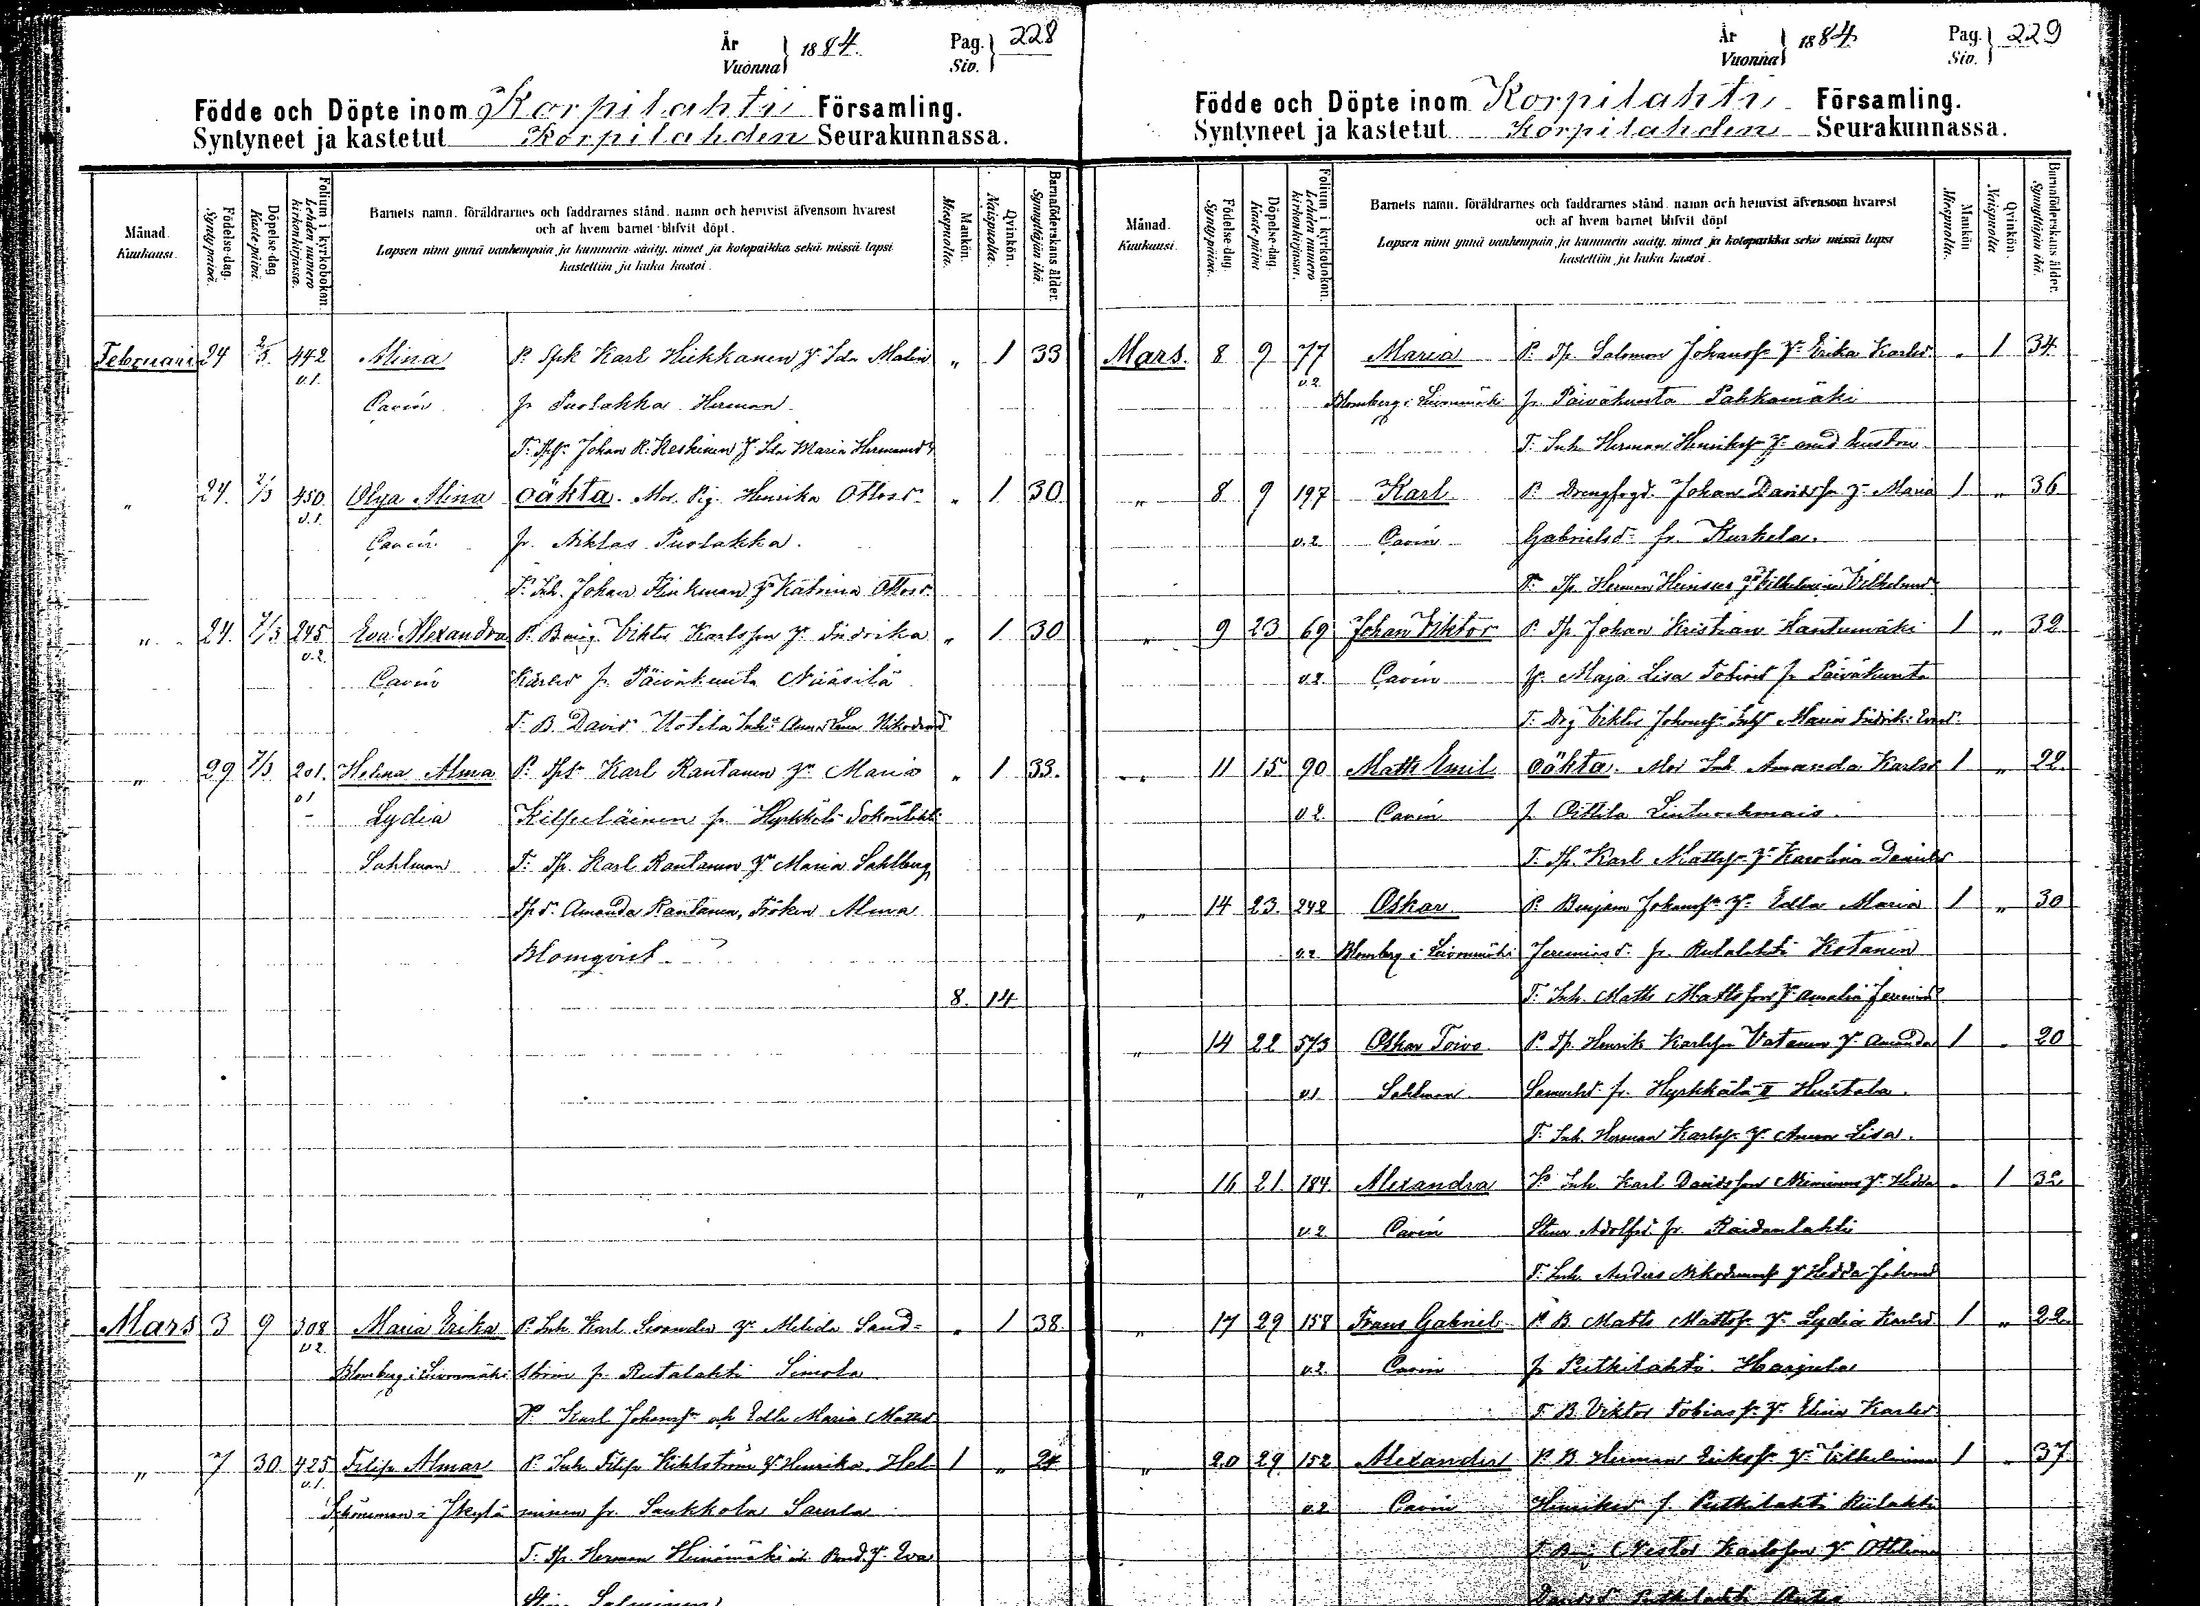 År
Vuonna
1884.
Pag.
Siv.
228
Födde och Döpte inom Korpilahti Församling.
Syntyneet ja kastetut Korpilahden Seurakunnassa.
Månad.
Kuukausi.
Födelse-dag.
Syntypäivä.
Döpelse-dag
Kaste-päivä.
Folium i kyrkoboken.
Lehden numero kirkonkirjassa.
Barnets namn, föräldrarnes och faddrarnes stånd, namn och hemvist äfvensom hvarest
och af hvem barnet blifvit döpt.
Lapsen nimi ynnä vanhempain ja kummein sääty, nimet ja kotopaikka sekä missä lapsi
kastettiin ja kuka kastoi.
Mankön.
Miespuolta.
Qvinkön.
Naispuolta.
Barnaföderskans ålder.
Synnyttäjän ikä.
Februari 24 2/3 442 Alina P. Spk Karl Hiekkanen H. Ida Malin " 1 33
v.1. Cavén fr Puolakka Herman
F. Johan R. Keskinen H. Ida Maria Hermansd.
" 24. 2/3 450. Olga Alina oäkta. Mor. Pig. Henrika Ottosd. " 1 30
v.1. Cavén fr. Niklas Puolakka.
F. Inh. Johan Kinkman H. Katrina Ottosd.
" 24. 7/3 245 Eva Alexandra P. Viktor Karlsson H. Fredrika " 1 30
v.2. Cavén Karlsd fr. Päiväkunta Nääsilä
F. B. David Uotila Inh. Anna Lena Nikodemd
" 29 7/3 201. Helena Alma P. Karl Rantanen H. Maria " 1 33.
v1 Lydia Kilpeläinen fr. Hyrkkälä
Sahlman F. Tp. Karl Rantanen H. Maria Sahlberg
Amanda Rantanen, Fröken Alma
Blomqvist
8. 14
Mars 3 9 308 Maria Erika P. Inh Karl H. Melida Sand- " 1 38.
v2. Blomberg i Leivonmäki ström fr. Rutalahti Simola
F. Karl Johansf. och Edla Maria Mattsd
" 7 30 425 Filip Almar P. Inh Filip Kihlström H. Henrika Hel- 1 " 24
v.1. i Jkylä minen fr. Saukkola Saurla
F. Tp. Herman Heinämäki H. Eva
Stina Salminen
År
Vuonna
1884
Pag.
Siv.
229
Födde och Döpte inom Korpilahti Församling.
Syntyneet ja kastetut Korpilahden Seurakunnassa.
Månad.
Kuukausi.
Födelse-dag.
Syntypäivä.
Döpelse-dag.
Kaste-päivä
Folium i kyrkoboken.
Lehden numero kirkonkirjassa.
Barnets namn, föräldrarnes och faddrarnes stånd, namn och hemvist äfvensom hvarest
och af hvem barnet blifvit döpt
Lapsen nimi ynnä vanhempain ja kummein sääty, nimet ja kotopaikka sekä missä lapsi
kastettiin ja kuka kastoi.
Mankön
Miespuolta.
Qvinkön.
Naispuolta
Barnaföderskans ålder.
Synnyttäjän ikä.
Mars. 8 9 77 Maria P. Tp. Salomon Johansf. H. Erika Karlsd. " 1 34
v.2. Blomberg i Leivonmäki fr. Päiväkunta Pahkamäki
F. Inh. Herman Henriksf. H. med hustru
" 8 9 197 Karl P. Drengfogd. Johan Davidsson H. Maria 1 " 36
v.2 Cavén Gabrielsd. fr. Kurkela.
F. Tp. Herman Heinsuo H. Vilhelmina Vilhelmsd
" 9 23 69 Johan Viktor P. Tp Johan Kristian Kantumäki 1 " 32
v.2 Cavén H. Maja Lisa Tobiasd fr Päiväkunta
F. Drg Viktor Johansf. Maria Fredrika
" 11 15 90 Matts Emil oäkta. Mor Inh. Amanda Karlsd 1 " 22
v2. Cavén fr Oittila
F. Tp. Karl Mattsf. H. Karolina Davidsd
" 14 23. 242 Oskar P. Benjam Johansf. H. Edla Maria 1 " 30
v.2 Blomberg i Leivonmäki Jeremiasd. fr. Rutalahti Ketanen
F. Inh. Matts Mattsson H. Amalia Jeremiasd
" 14 22 573 Oskar Toivo P. Tp. Henrik Karlsson Vatanen H. Amanda 1 " 20
v.1 Sahlman Samuelsd. fr. Hyrkkälä II
F. Inh. Herman Karlsf. H. Anna Lisa.
" 16 21. 184 Alexandra P. Inh. Karl Davidsson Nieminen H. Hedda " 1 32
v.2. Cavén Stina Adolfsd. fr. Raidanlahti
F. Inh. Anders Nikodemusf. H. Hedda Johansd
" 17 29 158 Frans Gabriel P. B. Matts Mattsf. H. Lydia Karlsd 1 " 22
v.2 Cavén fr Putkilahti Harjula
F. B. Viktor Tobiasf. H. Elina Karlsd
" 20 29 152 Alexander P. B. Herman Eriksf. H. Vilhelmina 1 " 37
v.2 Cavén Henriksd fr. Putkilahti
F. Nestor Karlsson H. Ottiliana
Davidsd Putkilahti